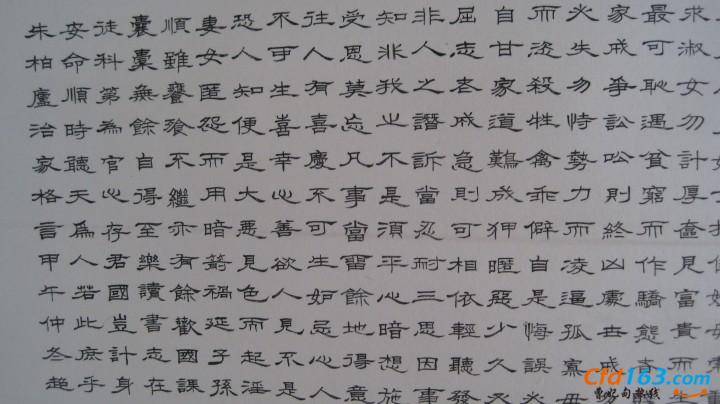 求淑女勿計厚奩見富貴而
最可恥遇貧窮而作驕態者
家戒爭訟訟則終凶處世戒
必失勿恃勢力而凌逼孤寡毋
而恣殺牲禽乖僻自是悔誤必
自甘家道難成狎暱惡少久
屈志老成急則可相依輕聽發
非人之譖訴當忍耐三思因事
知非我之不是須平心暗想施
受恩莫忘凡事當留餘地得意
往人有喜慶不可生妒忌心人
不可生喜幸心善欲人見不是
恐人知便是大惡見色而起淫
妻女匿怨而用暗箭禍延子孫
順雖饔飧不繼亦有餘歡國課
囊橐無餘自得至樂讀書志在
徒科第為官心存君國豈計身
安命順時聽天為人若此庶乎
朱柏廬治家格言甲午仲冬
Cfd163.com